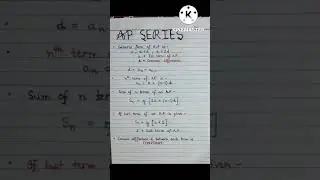 AP SERIES
• General form of A.P. is -
a, a+d, a+2d
a = 1st term of AP
d = Common difference
d = aₙ - aₙ₋₁
• nth term of AP is -
aₙ = a + (n-1)d
• Sum of n terms of an A.P. -
Sₙ = n/2 [2a + (n-1)d]
• If last term of an AP is given -
Sₙ = n/2 [a + l]
l = last term of A.P.
• Common difference d between each term is
CONSTANT
KINEMASTER
d = aₙ
nth term
aₙ
Sum of n
Sₙ
• If last
given -